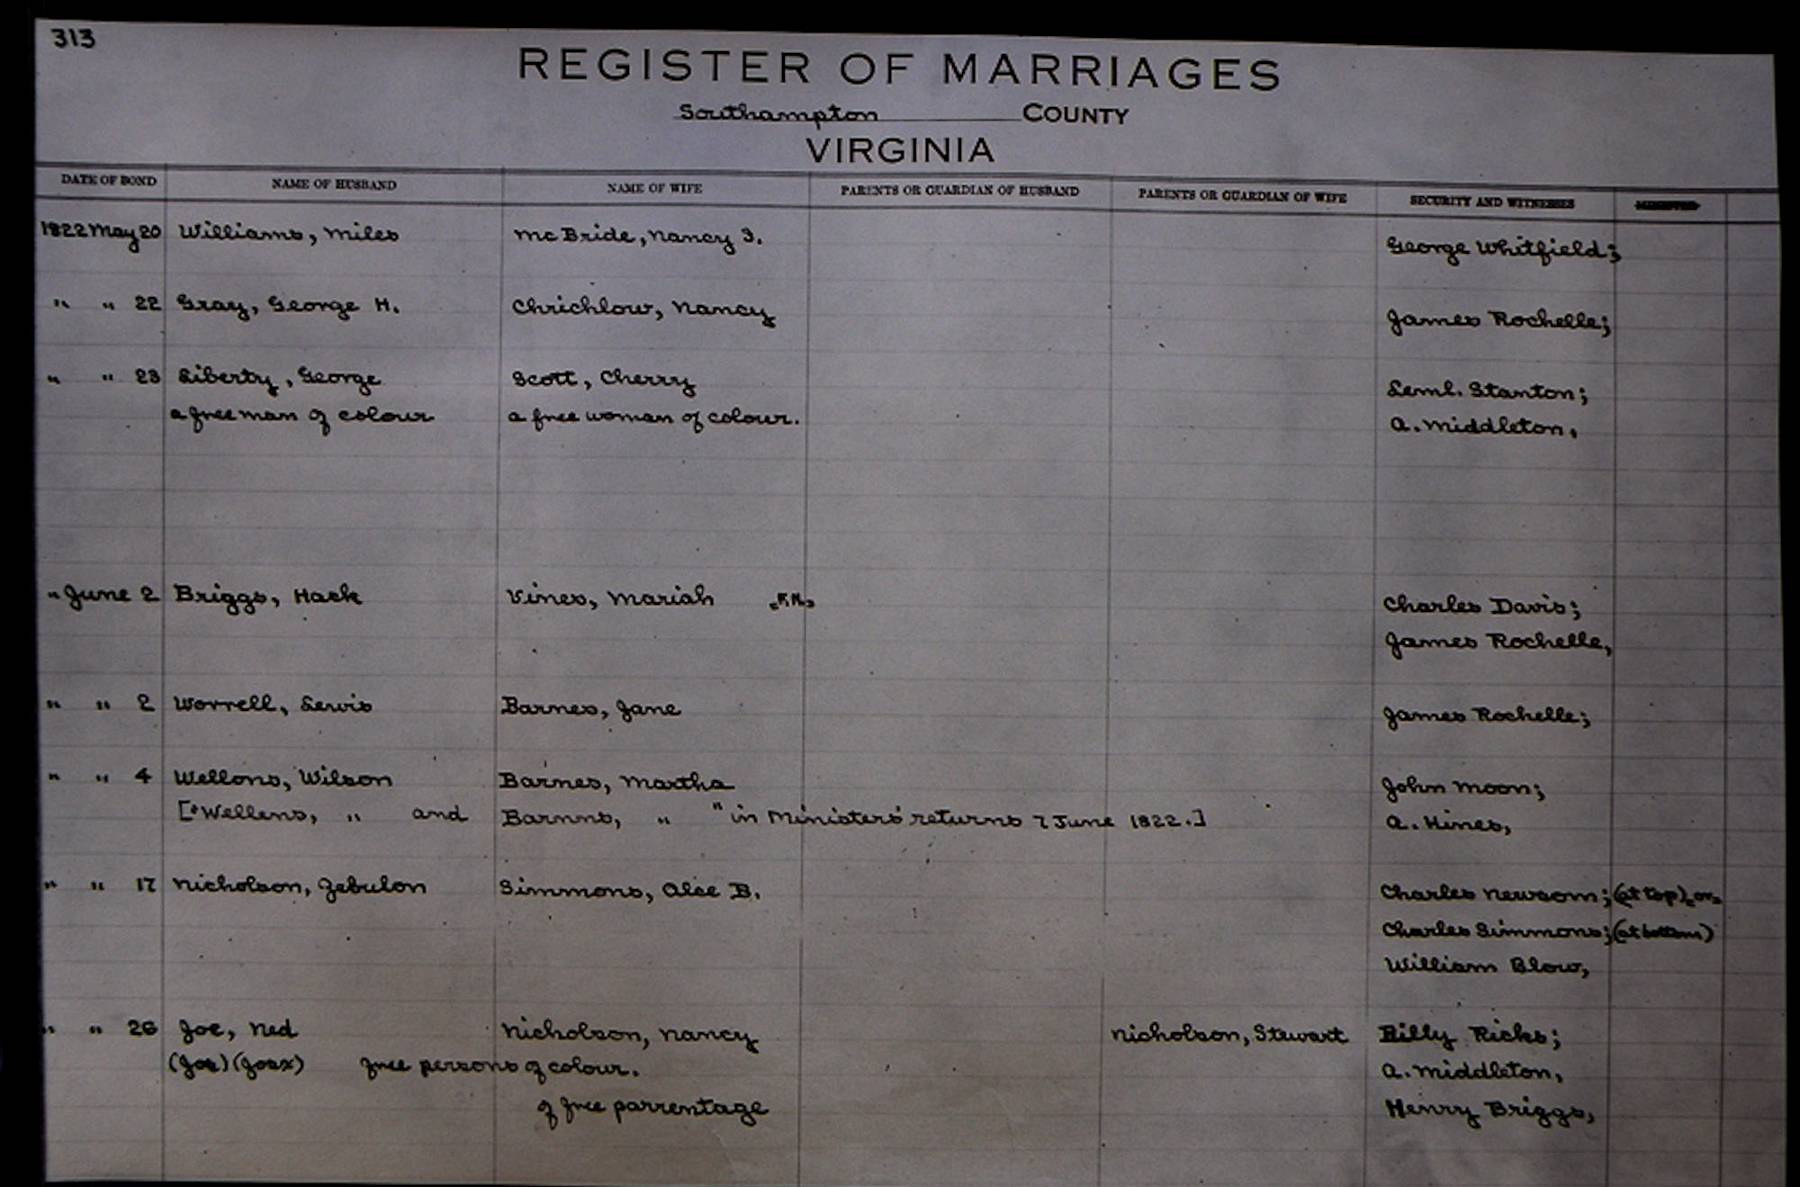 313
REGISTER OF MARRIAGES
Southampton COUNTY
VIRGINIA
DATE OF BOND NAME OF HUSBAND NAME OF WIFE PARENTS OR GUARDIAN OF HUSBAND PARENTS OR GUARDIAN OF WIFE SECURITY AND WITNESSES MINISTER
1822 May 20 Williams, Miles McBride, Nancy J. George Whitfield;
" " 22 Gray, George H. Chrichlow, Nancy James Rochelle;
" " 23 Liberty, George Scott, Cherry Leml. Stanton;
a free man of colour a free woman of colour. A. Middleton,
" June 2 Briggs, Hack Vines, Mariah Charles Davis;
James Rochelle,
" " 2 Worrell, Lewis Barnes, Jane James Rochelle;
" " 4 Wellons, Wilson Barnes, Martha John Moon;
["Wellens, " and Barnns, " " in Ministers' returns 7 June 1822.] A. Hines,
" " 17 Nicholson, Zebulon Simmons, Alce B. Charles Newsom; (at top) or
Charles Simmons; (at bottom)
William Blow,
" " 26 Joe, Ned Nicholson, Nancy Nicholson, Stewart Billy Ricks;
(Joe) (Joex) free persons of colour. A. Middleton,
of free parrentage Henry Briggs,